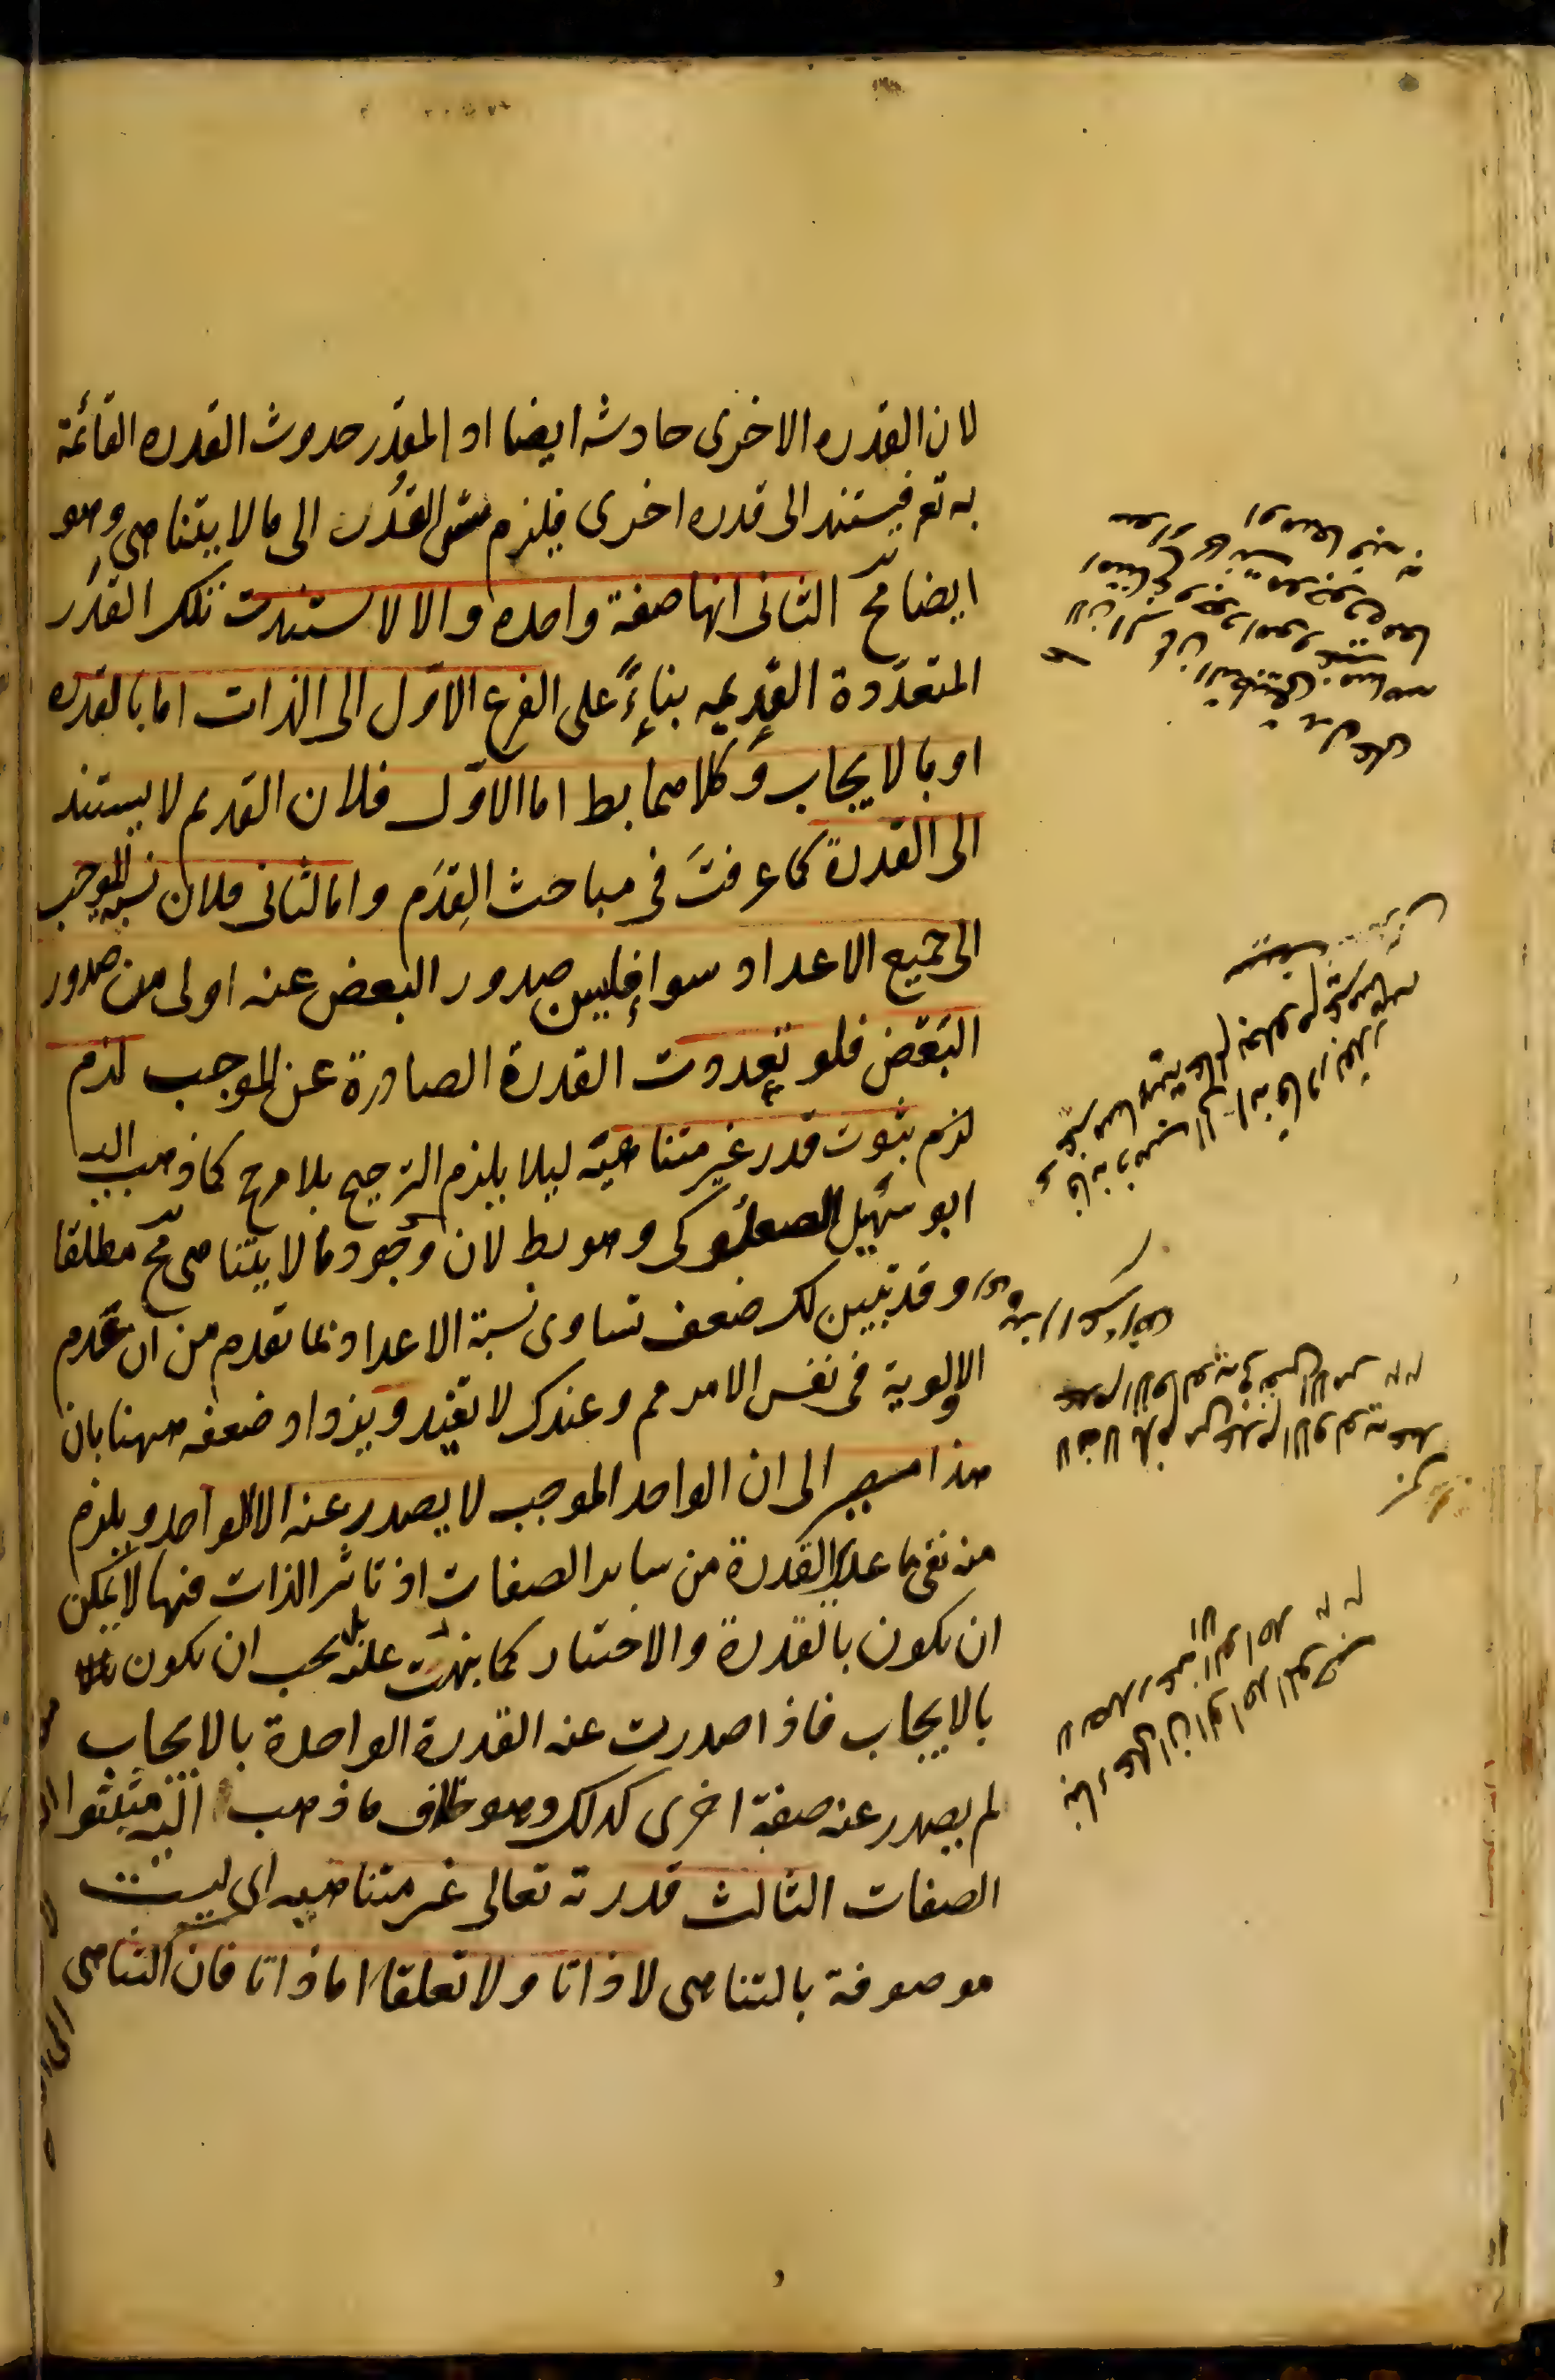 لان القدره الاخرى حادثه ايضا اذ المقدر حدوث القدره القائمة
به تع فيستند الى قدره اخرى فيلزم تس القُدَر الى ما لا يتناهى وهو
ايضا مح الثانى انها صفة واحده والا لاستندت تلك القدَر
المتعدّدة القديمه بناءً على الفرع الاوّل الى الذات اما بالقدره
او بالايجاب وكلاهما بط اما الاوّل فلان القديم لا يستند
الى القدرة كما عرفتَ فى مباحث القِدَم واما الثانى فلان نسبة الموجب
الى جميع الاعداد سواء فليس صدور البعض عنه اولى من صدور
البَعْض فلو تعددت القدرة الصادرة عن الموجب لزم
لزم ثبوت قدر غير متناهيّة ليلا يلزم الترجيح بلا مرجح كما ذهب اليه
ابو سَهْل الصعلوكى وهو بط لان وجود ما لا يتناهى مح مطلقا
وقد تبين لك ضعف تساوى نسبة الاعداد بما تقدم من ان عَدم
الاولوية فى نفس الامر مم وعندك لا تفيد ويزداد ضعفه ههنا بان
هذا مصير الى ان الواحد الموجب لا يصدر عنه الا الواحد ويلزم
منه نفى ما عدا القدرة من ساير الصفات اذ تاثير الذات فيها لا يمكن
ان يكون بالقدرة والاختيار كما نبهت عليه بل يجب ان يكون
بالايجاب فاذا صدرت عنه القدرة الواحدة بالايجاب
لم يصدر عنه صفة اخرى كذلك وهو خلاف ما ذهب اليه مثبتوا
الصفات الثالث قدرته تعالى غير متناهيه اى ليست
موصوفة بالتناهى لا ذاتا ولا تعلقا اما ذاتا فان التناهى
لانه لا يلزم من عدم الاولوية عندك
عدم الاولوية فى نفس الامر
بناء على ان الواحد الموجب
لا يصدر عنه الا الواحد